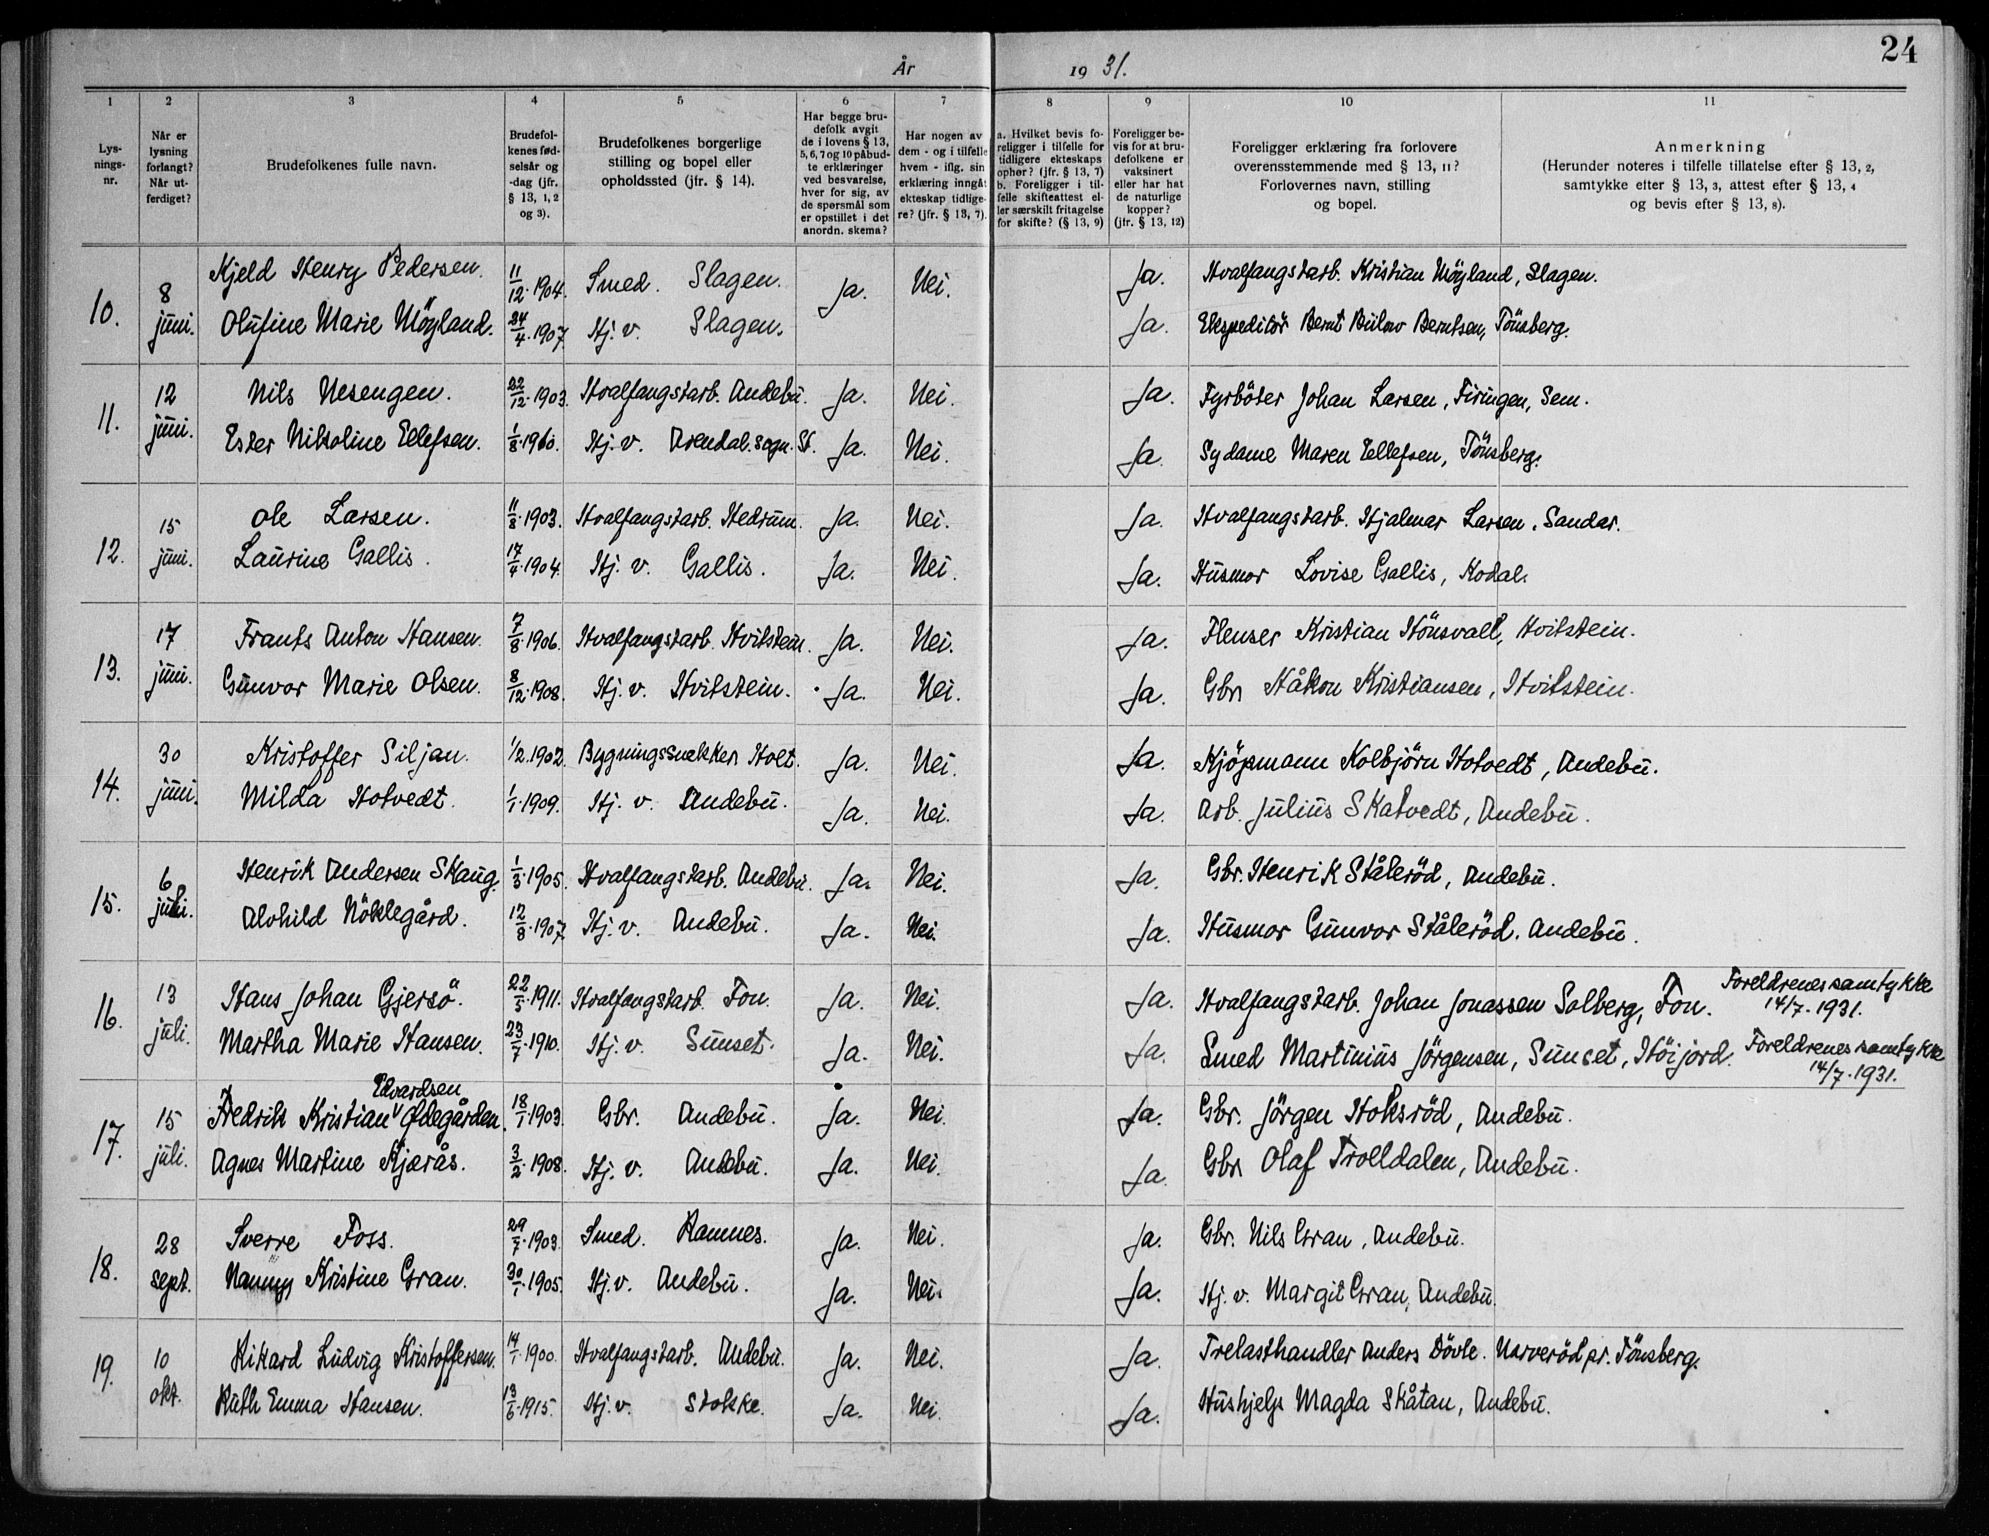 24
År 1931.
1 2 3 4 5 6 7 8 9 10 11
Lys-
nings-
nr.
Når er
lysning
forlangt?
Når ut-
ferdiget?
Brudefolkenes fulle navn.
Brudefol-
kenes fød-
selsår og
-dag (jfr.
§ 13, 1, 2
og 3).
Brudefolkenes borgerlige
stilling og bopel eller
opholdssted (jfr. § 14).
Har begge bru-
defolk avgit
de i lovens § 13,
5, 6, 7 og 10 påbud-
te erklæringer
ved besvarelse,
hver for sig, av
de spørsmål som
er opstillet i det
anordn. skema?
Har nogen av
dem - og i tilfelle
hvem - iflg. sin
erklæring inngåt
ekteskap tidlige-
re? (jfr. § 13, 7).
a. Hvilket bevis fo-
religger i tilfelle for
tidligere ekteskaps
ophør? (jfr. § 13, 7)
b. Foreligger i til-
felle skifteattest el-
ler særskilt fritagelse
for skifte? (§ 13, 9)
Foreligger be-
vis for at bru-
defolkene er
vaksinert
eller har hat
de naturlige
kopper?
(jfr. § 13, 12)
Foreligger erklæring fra forlovere
overensstemmende med § 13, 11?
Forlovernes navn, stilling
og bopel.
Anmerkning
(Herunder noteres i tilfelle tillatelse efter § 13, 2,
samtykke efter § 13, 3, attest efter § 13, 4
og bevis efter § 13, 8).
10. 8 juni. Kjeld Henry Pedersen. 11/12.1904. Smed. Slagen. Ja. Nei. Ja. Hvalfangstarb. Kristian Möyland, Slagen.
Olufine Marie Möyland. 24/4.1907. Hj. v. Slagen. Ja. Ekspeditör Bernt Bülow Berntsen, Tönsberg.
11. 12 juni. Nils Nesengen. 22/12.1903. Hvalfangstarb. Andebu. Ja. Nei. Ja. Fyrböter Johan Larsen, Firingen, Sem.
Ester Nikoline Ellefsen. Hj. v. Arendal. sogn. St. Ja. Nei. Ja. Sydame Maren Ellefsen, Tönsberg.
12. 15 juni. Ole Larsen. 11/8.1903. Hvalfangstarb. Hedrum. Ja. Nei. Ja. Hvalfangstarb. Hjalmar Larsen, Sandar.
Laurine Gallis. 17/4.1904. Hj. v. Gallis. Ja. Nei. Ja. Husmor Lovise Gallis, Kodal.
13. 17 juni. Frants Anton Hansen. 7/8.1906. Hvalfangstarb. Hvitstein. Ja. Nei. Ja. Flenser Kristian Hönsvall, Hvitstein.
Gunvor Marie Olsen. 8/12.1908. Hj. v. Hvitstein. Ja. Nei. Ja. Gbr. Håkon Kristiansen, Hvitstein.
14. 30 juni. Kristoffer Siljan. 1/2.1902. Bygningssnekker Holt. Ja. Nei. Ja. Kjöpmann Kolbjörn Hotvedt, Andebu.
Milda Hotvedt. 1/1.1909. Hj. v. Andebu. Ja. Nei. Ja. Arb. Julius Skatvedt, Andebu.
15. 6 juli. Henrik Andersen Skaug. 1/3.1905. Hvalfangstarb. Andebu. Ja. Nei. Ja. Gbr. Henrik Stålerød, Andebu.
Alvhild Nöklegård. 12/8.1907. Hj. v. Andebu. Ja. Nei. Ja. Husmor Gunvor Stålerød. Andebu.
16. 13 juli. Hans Johan Gjersö. 22/5.1911. Hvalfangstarb. Fon. Ja. Nei. Ja. Hvalfangstarb. Johan Jonassen Solberg, Fon. Foreldrenes samtykke 14/7.1931.
Martha Marie Hansen. 23/7.1910. Hj. v. Sunset. Ja. Nei. Ja. Smed Martinius Jörgensen, Sunset, Höijord. Foreldrenes samtykke 14/7.1931.
17. 15 juli. Fredrik Kristian Edvardsen Ødegården. 18/1.1903. Gbr. Andebu. Ja. Nei. Ja. Gbr. Jörgen Hoksröd, Andebu.
Agnes Martine Kjærås. 3/2.1908. Hj. v. Andebu. Ja. Nei. Ja. Gbr. Olaf Trolldalen, Andebu.
18. 28 sept. Sverre Foss. 29/7.1903. Smed. Ramnes. Ja. Nei. Ja. Gbr. Nils Gran, Andebu.
Nanny Kristine Gran. 30/1.1905. Hj. v. Andebu. Ja. Nei. Ja. Hj. v. Margit Gran, Andebu.
19. 10 okt. Rikard Ludvig Kristoffersen. 14/1.1900. Hvalfangstarb. Andebu. Ja. Nei. Ja. Trelasthandler Anders Dövle. Narveröd pr. Tönsberg.
Ruth Emma Hansen. 13/6.1915. Hj. v. Stokke. Ja. Nei. Ja. Hushjelp Magda Skåtan, Andebu.